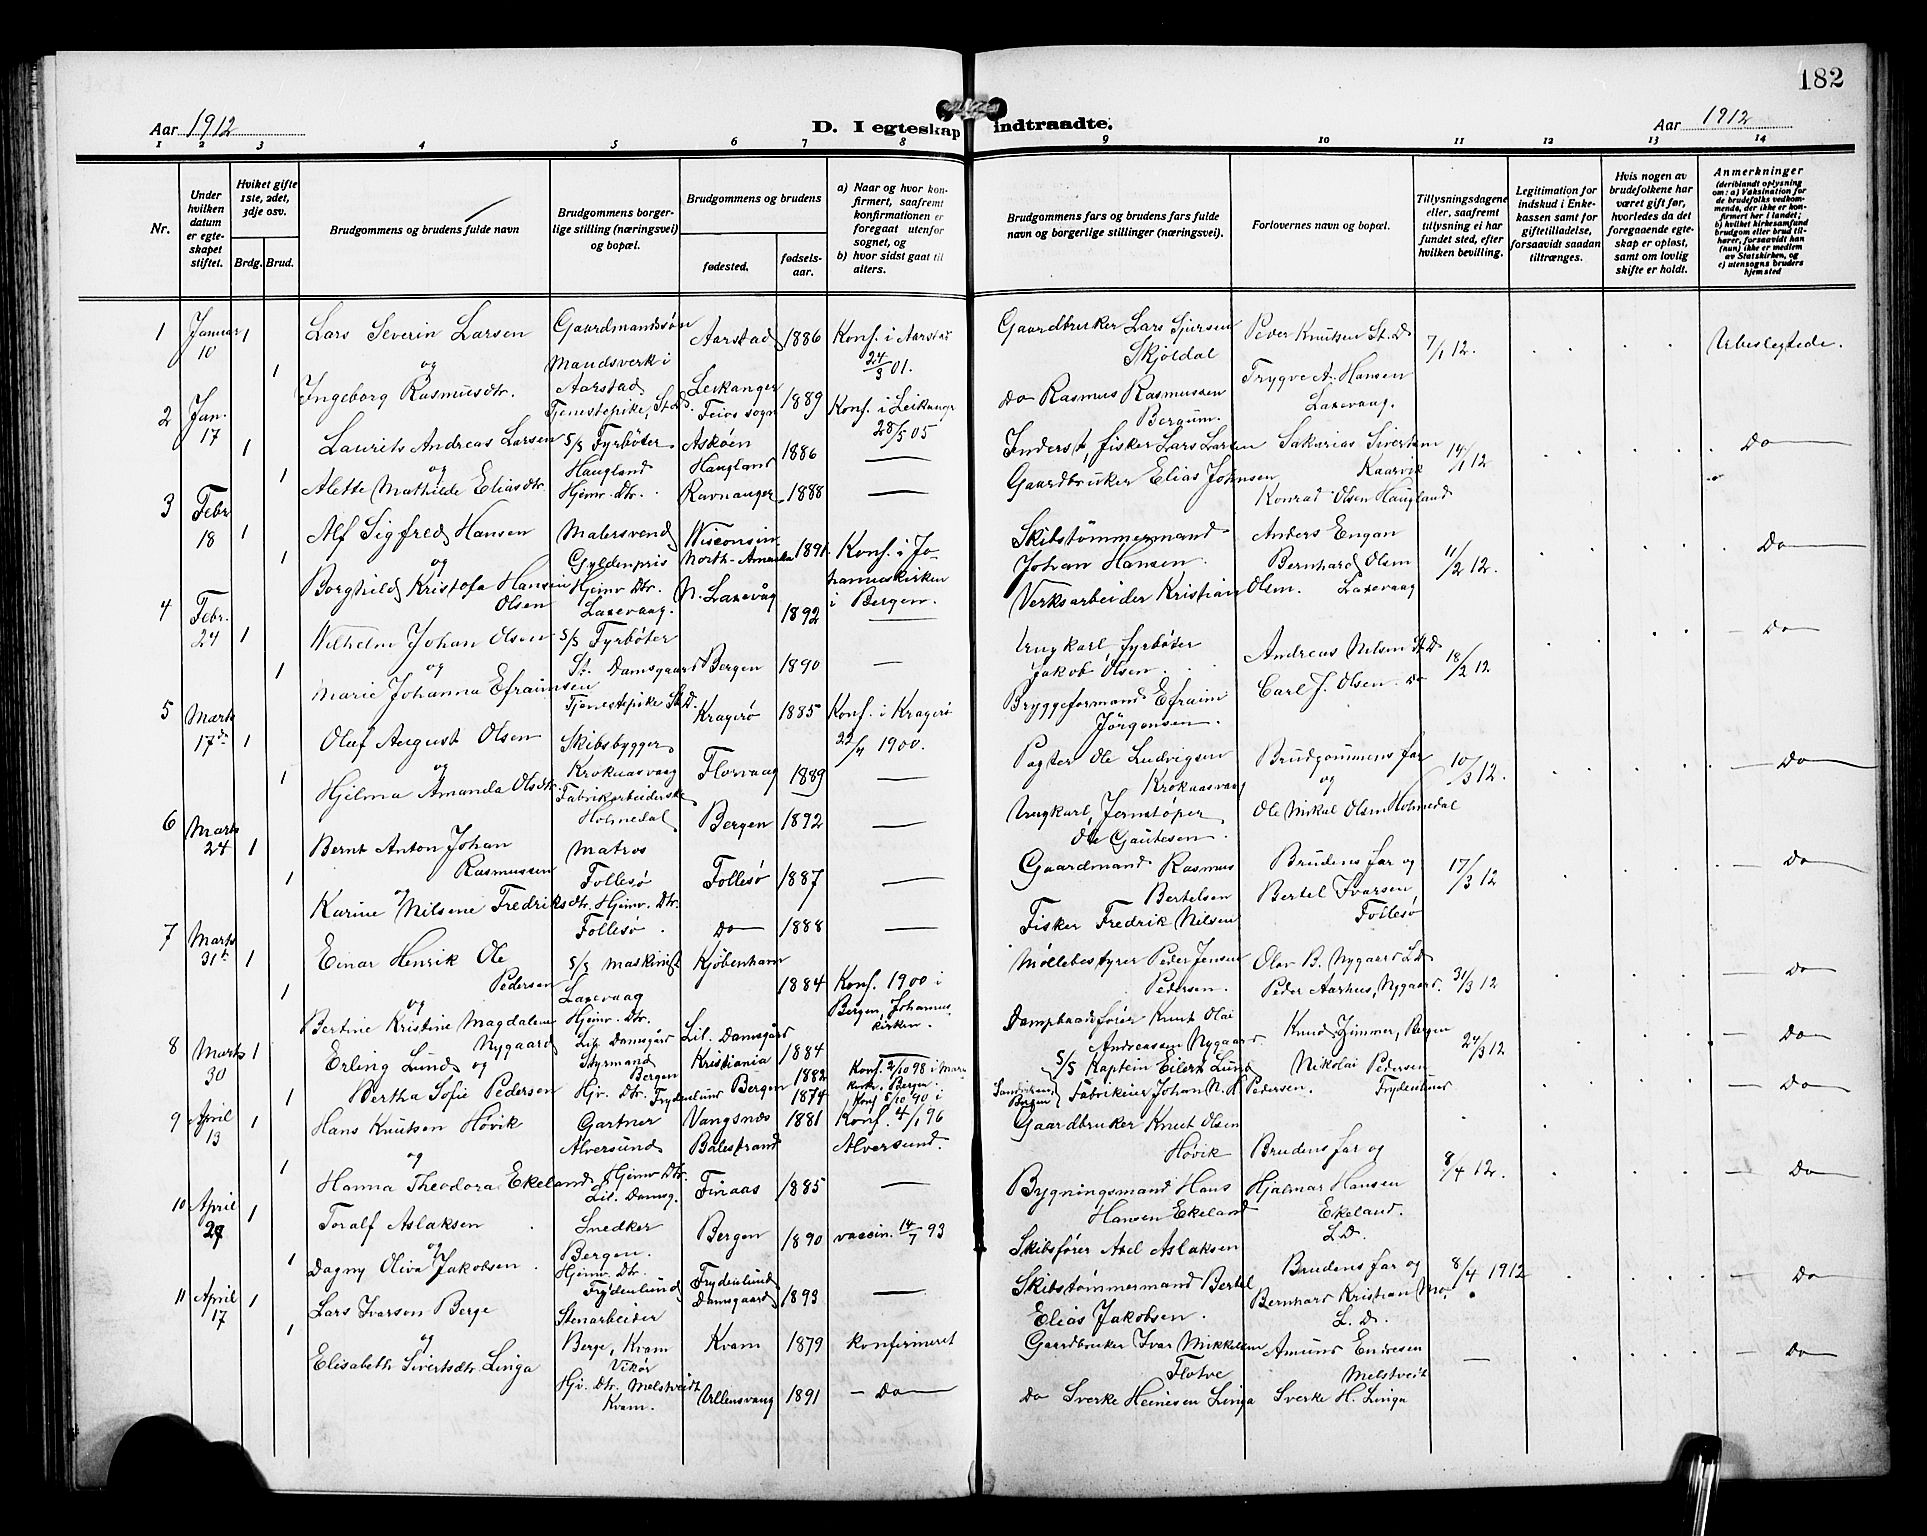 182
Aar 1912
D. I egteskap indtraadte.
Aar 1912
1 2 3 4 5 6 7 8 9 10 11 12 13 14
Nr.
Under hvilken datum er egteskapet stiftet.
Hvilket gifte 1ste, 2det, 3dje osv.
Brdg. Brud.
Brudgommens og brudens fulde navn
Brudgommens borgerlige stilling (næringsvei) og bopæl.
Brudgommens og brudens
fødested.
fødselsaar.
a) Naar og hvor konfirmert, saafremt konfirmationen er foregaat utenfor sognet, og
b) hvor sidst gaat til alters.
Brudgommens fars og brudens fars fulde navn og borgerlige stillinger (næringsvei).
Forlovernes navn og bopæl.
Tillysningsdagene eller, saafremt tillysning ei har fundet sted, efter hvilken bevilling.
Legitimation for indskud i Enkekassen samt for giftetilladelse, forsaavidt saadan tiltrænges.
Hvis nogen av brudefolkene har været gift før, hvorledes da det foregaaende egteskap er opløst, samt om lovlig skifte er holdt.
Anmerkninger
(deriblandt oplysning om: a) Vaksination for de brudefolks vedkommende, der ikke er konfirmert her i landet; b) hvilket kirkesamfund brudgom eller brud tilhører, forsaavidt han (hun) ikke er medlem av Statskirken, og c) utensogns bruders hjemsted
1 Januar 10 1 Lars Severin Larsen Gaardmandssøn Aarstad 1886 Konf. i Aarstad 24/3 01. Gaardbruker Lars Sjursen Skjøldal Peder Knutsen St. D. 7/1 12. Ubeslegtede.
og Mandsverk i Aarstad
1 Ingeborg Rasmusdtr. Tjenestepike, St. D. Leikanger Feios sogn 1889 Konf. i Leikanger 28/5 05 Do Rasmus Rasmussen Bergum. Trygve A. Hansen Laxevaag.
2 Jan. 17 1 Laurits Andreas Larsen S/S Fyrbøter Haugland Askøen Haugland 1886 — Inderst, fisker Lars Larsen Sakarias Sivertsen Kaarvik 14/1 12 Do
og
1 Alette Mathilde Eliasdtr. Hjemv. Dtr. Ravnanger 1888 — Gaardbruker Elias Johnsen Konrad Olsen Haugland
3 Febr 18 1 Alf Sigfred Hansen Malersvend Gyldenpris Wisconsin North-Amerika 1891 Konf. i Johanneskirken i Bergen. Skibstømmermand Johan Hansen. Anders Engan 11/2 12. Do
og
1 Borghild Kristofa Hansine Olsen Hjemv Dtr. Laxevaag. N. Laxevåg 1892 — Verksarbeider Kristian Olsen. Bernhard Olsen Laxevaag
4 Febr. 24 1 Wilhelm Johan Olsen S/S Fyrbøter St. Damsgaard Bergen 1890 — Ungkarl, fyrbøter Jakob Olsen. Andreas Nilsen St. D 18/2 12 Do
og
1 Marie Johanna Efraimsen Tjenestepike St. D. Kragerø 1885 Konf. i Kragerø 22/4 1900. Bryggeformand Efraim Jörgensen. Carl J. Olsen. Do
5 Marts 17de 1 Olaf August Olsen Skibsbygger Krokaasvaag Florvaag 1889 — Pagter Ole Ludvigsen Krokaasvaag Brudgommens far 10/3 12. Do
og og
1 Hjelma Amanda Olsdtr. Fabrikarbeiderske Holmedal Bergen 1892 — Ungkarl, Jernstøper Ole Gautesen. Ole Mikal Olsen Holmedal
6 Marts 24 1 Bernt Anton Johan Rasmussen Matros Follesø Follesø 1887 — Gaardmand Rasmus Bertelsen Brudens far og 17/3 12 Do
og
1 Karine Nilsene Fredriksdtr. Hjemv. Dtr. Follesø. Do 1888 — Fisker Fredrik Nilsen Bertel Ivarsen Follesø
7 Marts 31te 1 Einar Henrik Ole Pedersen S/S Maskinist Laxevaag Kjöbenhavn 1884 Konf. 1900 i Bergen, Johanneskirken. Møllebestyrer Peder Jensen Pedersen. Olav B. Nygaard L. D 31/3 12 Do
og
1 Bertine Kristine Magdalene Nygaard Hjemv. Dtr. Lil. Damsgård Lil. Damsgård 1884 — Dampbaadfører Knut Olai Andreassen Nygaard. Peder Aarhus, Nygaard.
8 Marts 30 1 Erling Lund og Styrmand Bergen Kristiania 1882 Konf. 2/10 98 i Mariakirk. Bergen. S/S Kaptein Eilert Lund Knud Zimmer, Bergen 24/3 12 Do
1 Bertha Sofie Pedersen Hjv. Dtr. Frydenlund Bergen 1874 Konf 5/10 90 i Sandvikens Bergen Fabrikeier Johan N. K. Pedersen. Nikolai Pedersen Frydenlund Do
9 April 13 1 Hans Knutsen Høvik Gartner Alversund Vangsnes Balestrand 1881 Konf. 4/1 96 Alversund. Gaardbruker Knut Olsen Høvik Brudens far og 8/4 12. Do
og
1 Hanna Theodora Ekeland Hjemv Dtr. Lil. Damsg. Finaas 1885 — Bygningsmand Hans Hansen Ekeland Hjalmar Hansen Ekeland. L. D.
10 April 27 1 Toralf Aslaksen Snedker Bergen. Bergen 1890 vaccin. 14/7 93 Skibsfører Axel Aslaksen Brudens far og 8/4 1912 Do
og
1 Dagny Oliva Jakobsen. Hjemv. Dtr. Frydenlund Frydenlund Damsgaard 1893 — Skibstømmermand Bertel Elias Jakobsen. Bernhard Kristian Mo. L. D.
11 April 17 1 Lars Ivarson Berge Stenarbeider Berge, Kvam Vikör Kvam 1879 Konfirmeret Gaardbruker Ivar Mikkelsen Flotve Amund Endresen Melstveit — Do
og
1 Elisabeth Sivertsdtr Linga Hjv. Dtr. Melstveidt Kvam. Ullensvang 1891 — Do — Do Sverke Heinesen Linga Sverke H. Linga